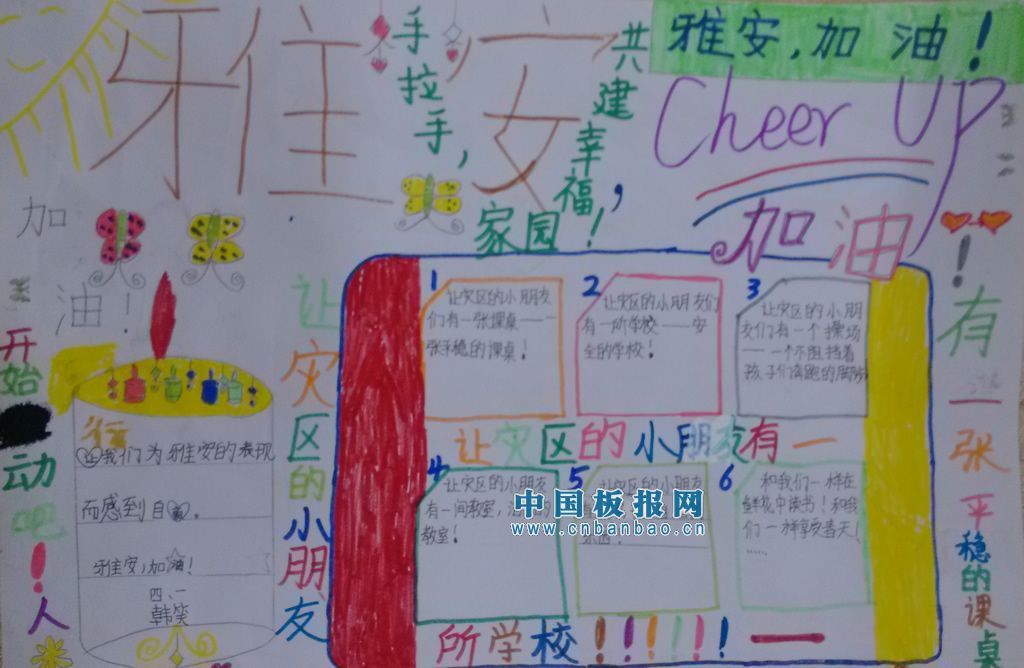 雅安
手拉手，
共建幸福，
家园！
雅安，加油！
Cheer Up
加油！
加
油！
开始
动吧！人
我们为雅安的表现
而感到自
雅安，加油！
四、一
韩笑
让灾区的小朋友
有一张平稳的课桌
1
让灾区的小朋友
们有一张课桌——一
张平稳的课桌！
2
让灾区的小朋友们
有一所学校——安
全的学校！
3
让灾区的小朋
友们有一个操场
——一个不阻挡着
孩子们奔跑的脚步
让灾区的小朋友有一
4
让灾区的小朋友
有一间教室，
教室！
5
让灾区的小朋友
6
和我们一样在
鲜花中读书！和我
们一样享受春天！
……
所学校！！！！！！一
中国板报网
www.cnbanbao.cn